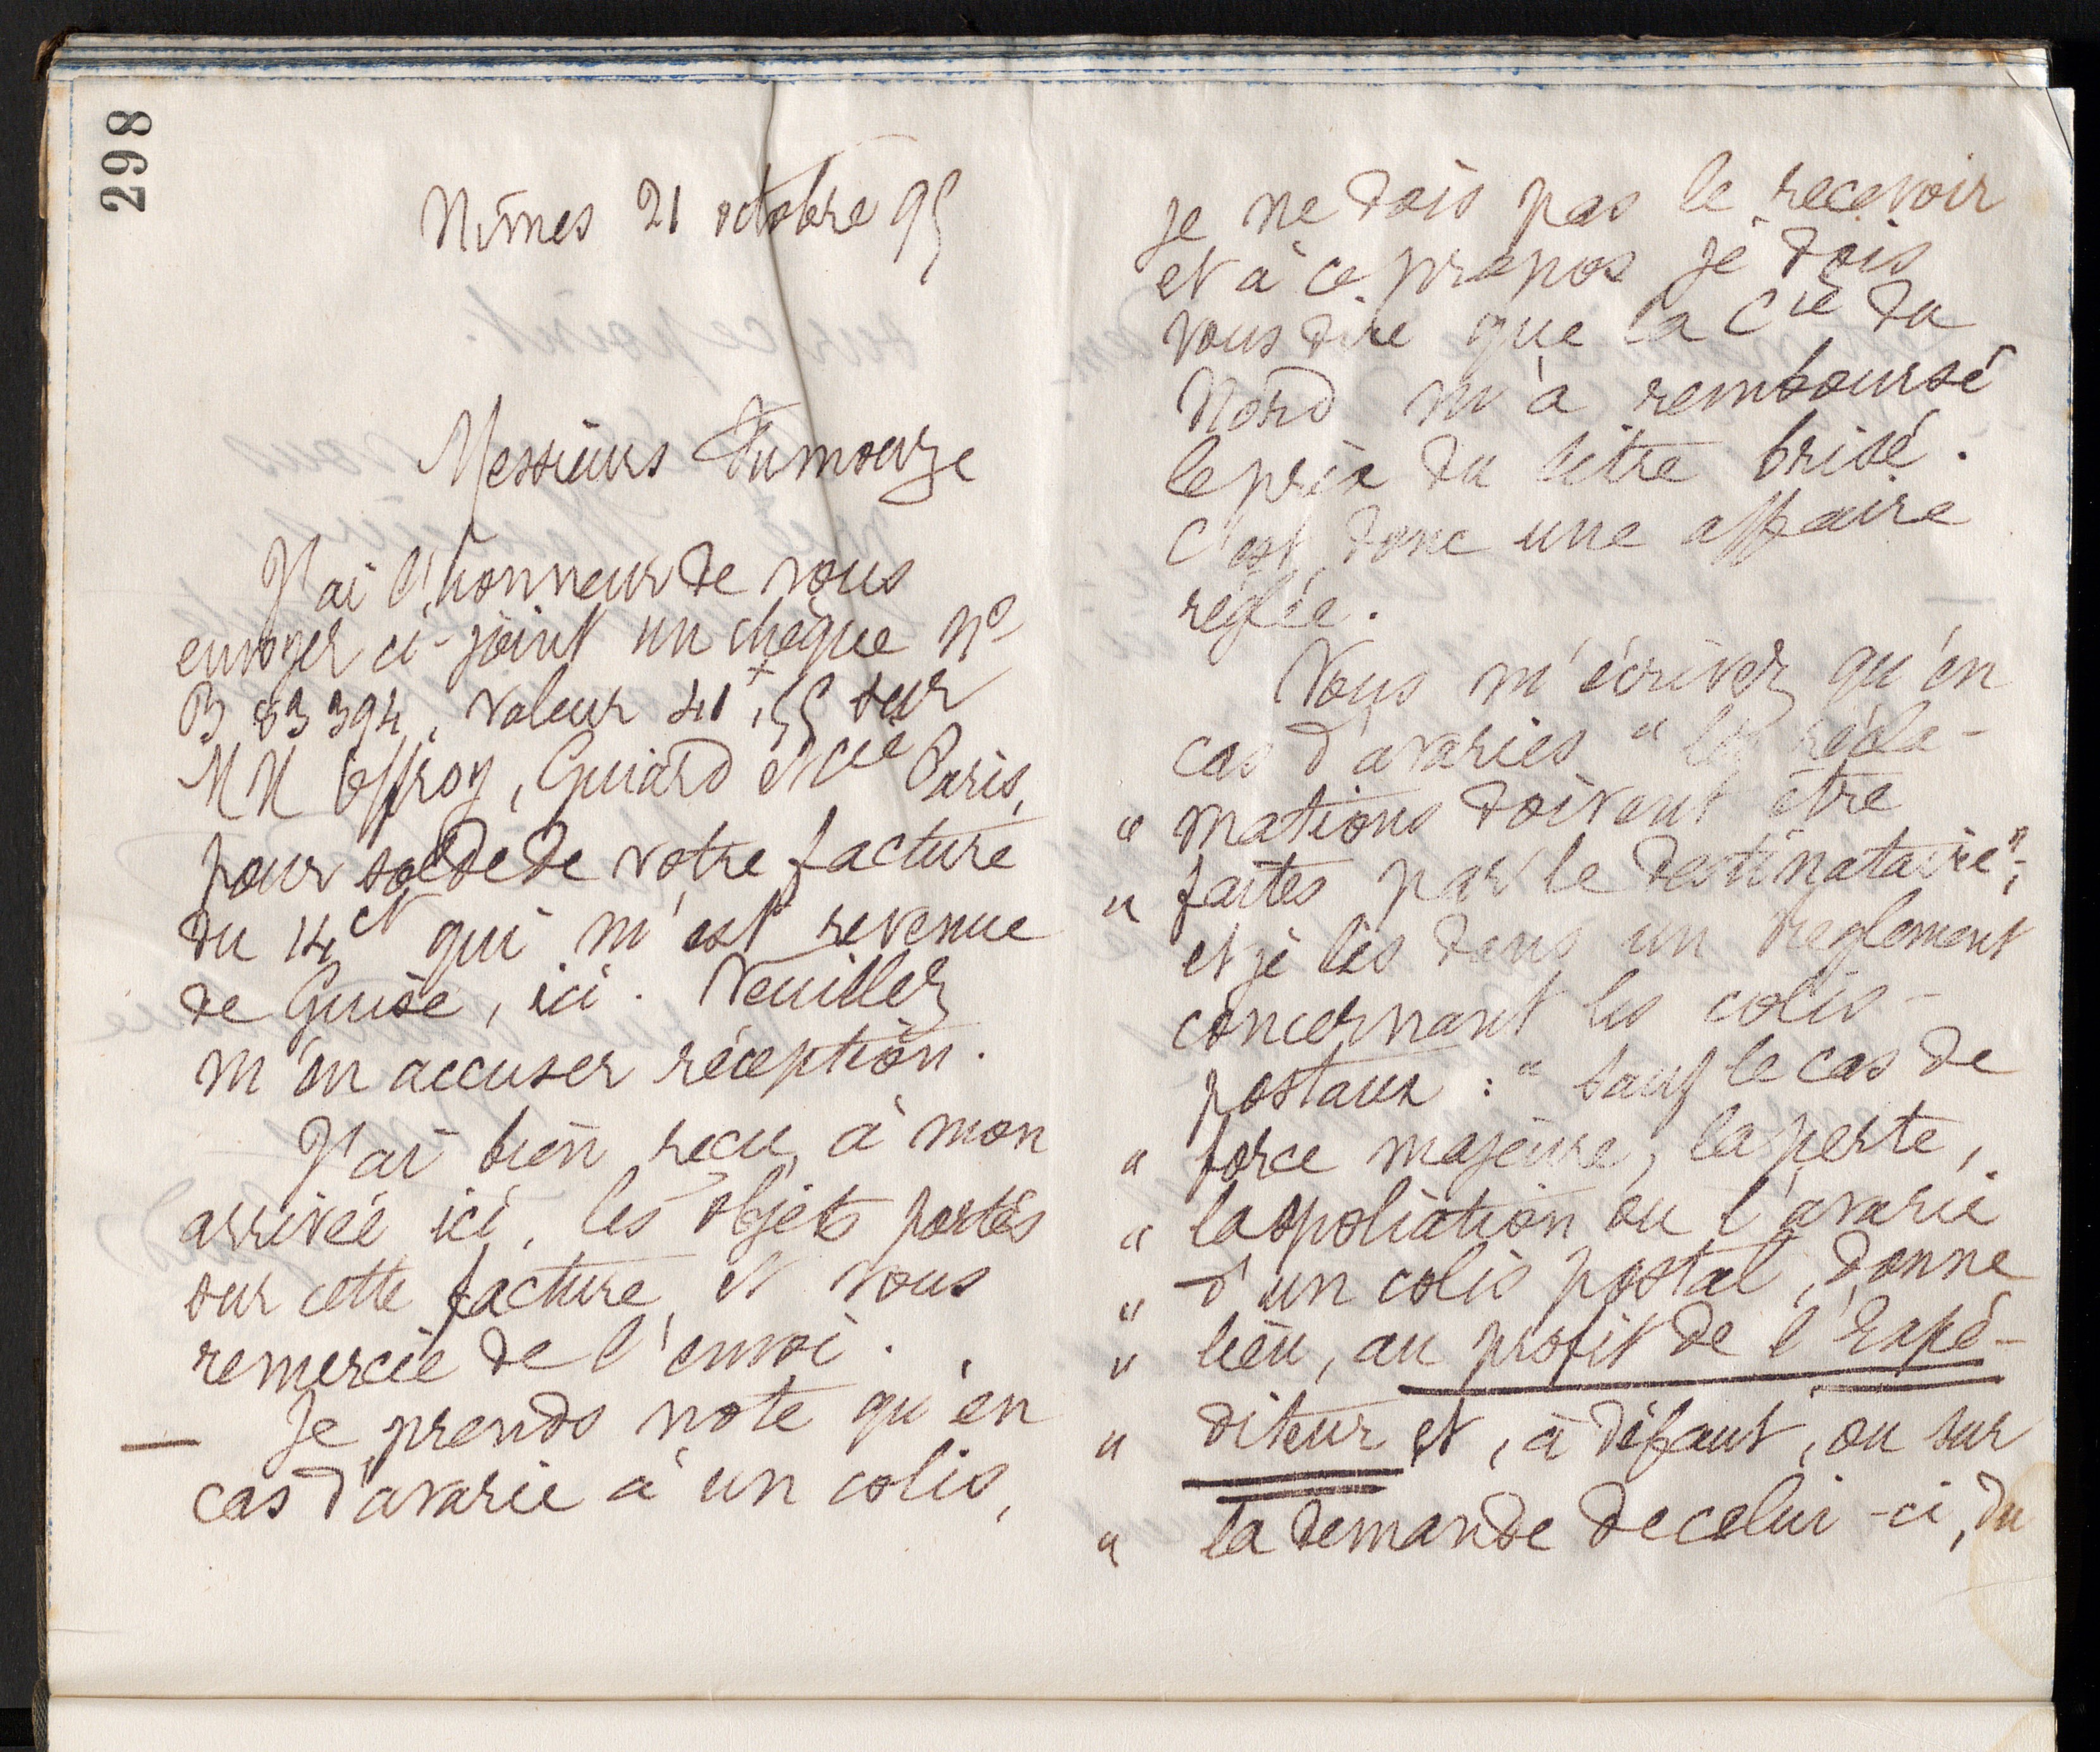 298
Nîmes 21 octobre 95
Messieurs Fumouze
J'ai l'honneur de vous
envoyer ci-joint un chèque No
B 83394, valeur 41f,55 sur
MM Offroy, Guiard & Cie Paris,
pour solde de votre facture
du 14 ct qui m'est revenue
de Guise, ici. Veuillez
m'en accuser réception.
J'ai bien reçu, à mon
arrivée ici, les objets portés
sur cette facture et vous
remercie de l'envoi.
— Je prends note qu'en
cas d'avarie à un colis,
je ne dois pas le recevoir
et à ce propos je dois
vous dire que la Cie du
Nord m'a remboursé
le prix du litre brisé.
C'est donc une affaire
réglée.
Vous m'écrivez qu'en
cas d'avaries " les récla-
" mations doivent être
" faites par le destinataire";
et je lis dans un règlement
concernant les colis-
postaux : " Sauf le cas de
" force majeure, la perte,
" la spoliation ou l'avarie
" d'un colis postal, donne
" lieu, au profit de l'Expé-
" diteur et, à défaut, ou sur
" la demande de celui-ci, du